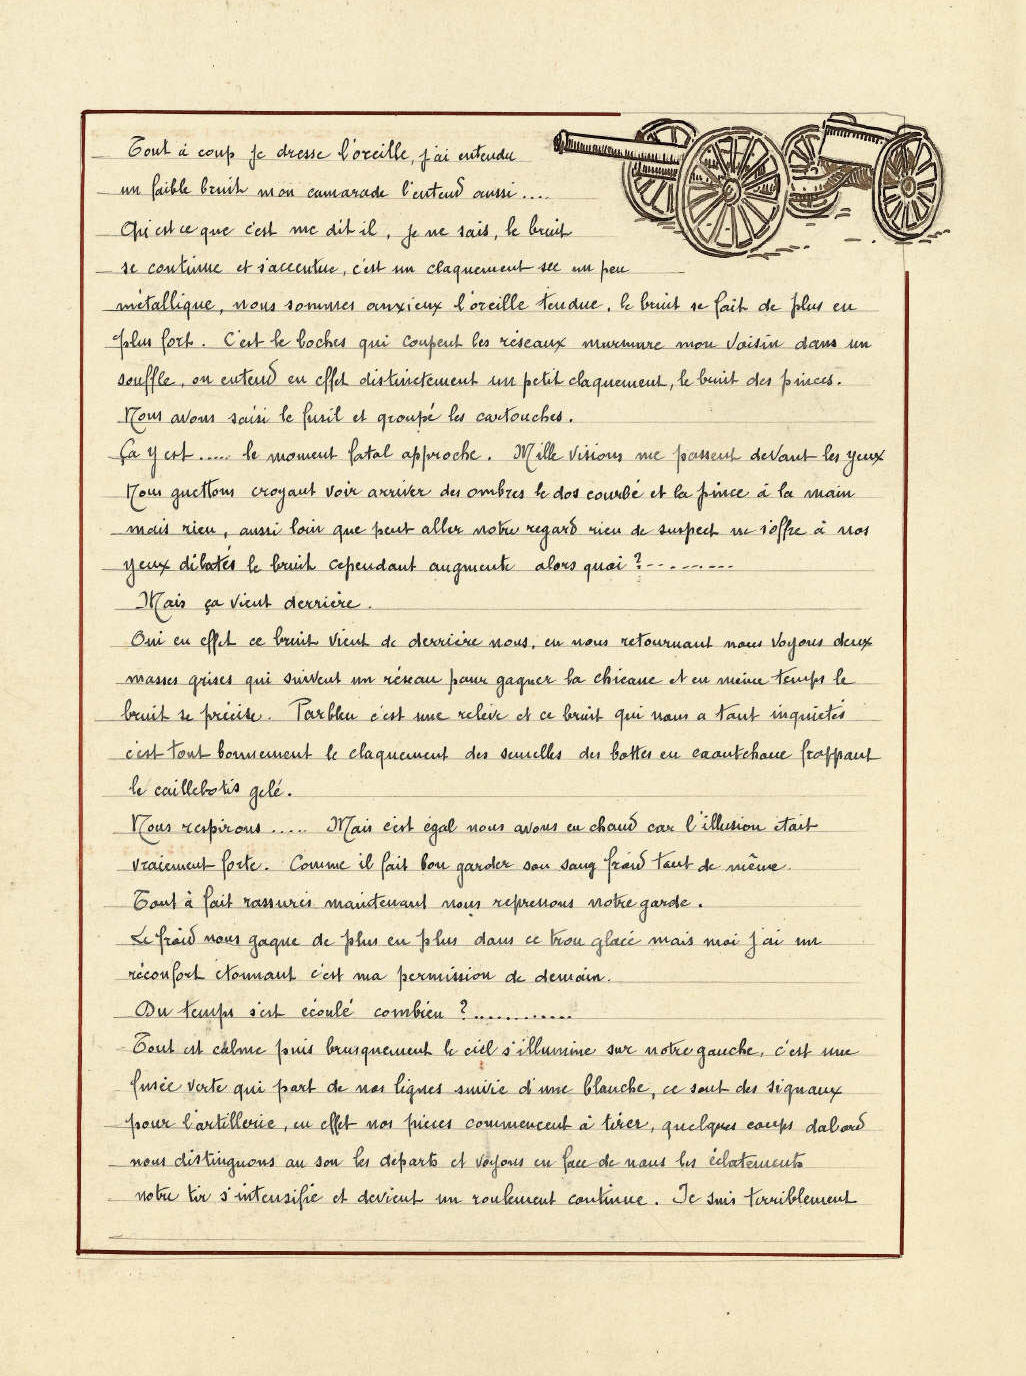 Tout à coup je dresse l'oreille, j'ai entendu
un faible bruit mon camarade l'entend aussi....
Qu'est ce que c'est me dit il, je ne sais, le bruit
se continue et s'accentue, c'est un claquement sec un peu
métallique, nous sommes anxieux l'oreille tendue, le bruit se fait de plus en
plus fort. C'est le boches qui coupent les réseaux murmure mon voisin dans un
souffle, on entend en effet distinctement un petit claquement, le bruit des pinces.
Nous avons saisi le fusil et groupé les cartouches.
Ça y est ..... le moment fatal approche. Mille visions me passent devant les yeux
Nous guettons croyant voir arriver des ombres le dos courbé et la pince à la main
mais rien, aussi loin que peut aller notre regard rien de suspect ne s'offre à nos
yeux dilatés le bruit cependant augmente alors quoi ?.........
Mais ça vient derrière.
Oui en effet ce bruit vient de derrière nous, en nous retournant nous voyons deux
masses grises qui suivent un réseau pour gagner la chicane et en même temps le
bruit se précise. Parbleu c'est une relève et ce bruit qui nous a tant inquiétés
c'est tout bonnement le claquement des semelles des bottes en caoutchouc frappant
le caillebotis gelé.
Nous respirons ..... Mais c'est égal nous avons eu chaud car l'illusion était
vraiement forte. Comme il fait bon garder son sang froid tout de même.
Tout à fait rassurés maintenant nous reprenons notre garde.
Le froid nous gagne de plus en plus dans ce trou glacé mais moi j'ai un
réconfort étonnant c'est ma permission de demain.
Du temps s'est écoulé combien ?............
Tout est calme puis brusquement le ciel s'illumine sur notre gauche, c'est une
fusée verte qui part de nos lignes suivie d'une blanche, ce sont des signaux
pour l'artillerie, en effet nos pièces commencent à tirer, quelques coups dabord
nous distinguons au son les départs et voyons en face de nous les éclatements
notre tir s'intensifie et devient un roulement continue. Je suis terriblement